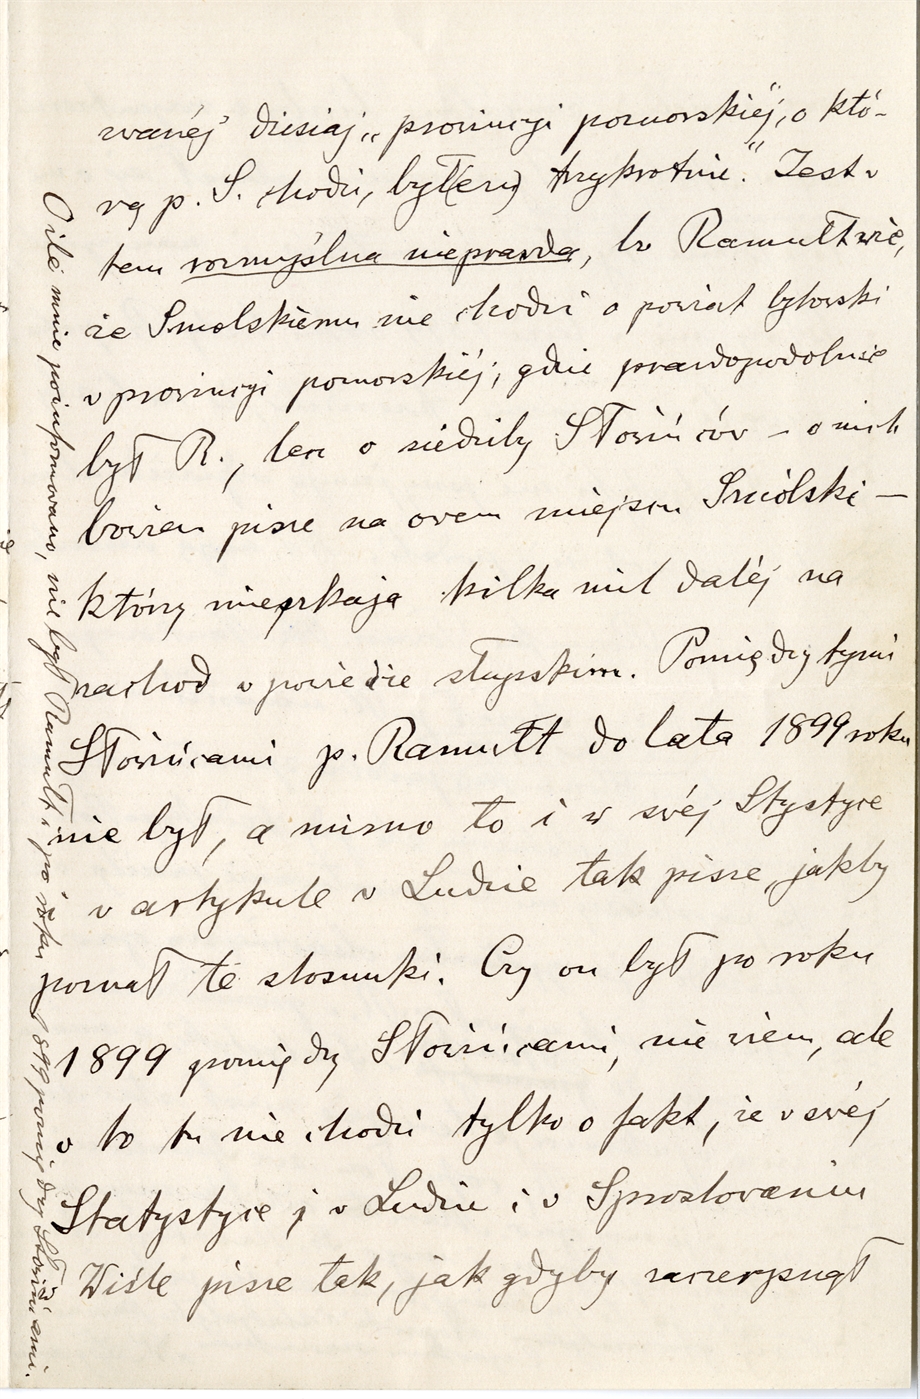 zwanéj dzisiaj „prowincyi pomorskiéj", o któ-
rą p. S. chodzi, był(em) trzykrotnie." Jest v
tem rozmyślna nieprawda, bo Ramułt wie,
że Smolskiemu nie chodzi o powiat bytowski
v prowincyi pomorskiéj, gdzie prawdopodobnie
był R., lecz o siedziby Słowińców – o nich
bowiem pisze na owem miejscu Smólski –
którzy mieszkają kilka mil daléj na
zachod v powiecie słupskim. Pomiędzy tymi
Słowińcami p. Ramułt do lata 1899 roku
nie był, a mimo to i w swéj Stystyce
v artykule v Ludzie tak pisze, jakby
poznał te stosunki. Czy on był po roku
1899 pomiędzy Słowińcami, nie wiem, ale
o to tu nie chodzi tylko o fakt, że v swéj
Statystyce j v Ludzie i v Sprostovaniu
Wiśle pisze tak, jak gdyby zaczerpnął
O ile mnie poinformowano, nie był Ramułt i po roku 1899 pomiędzy Słowińcami.